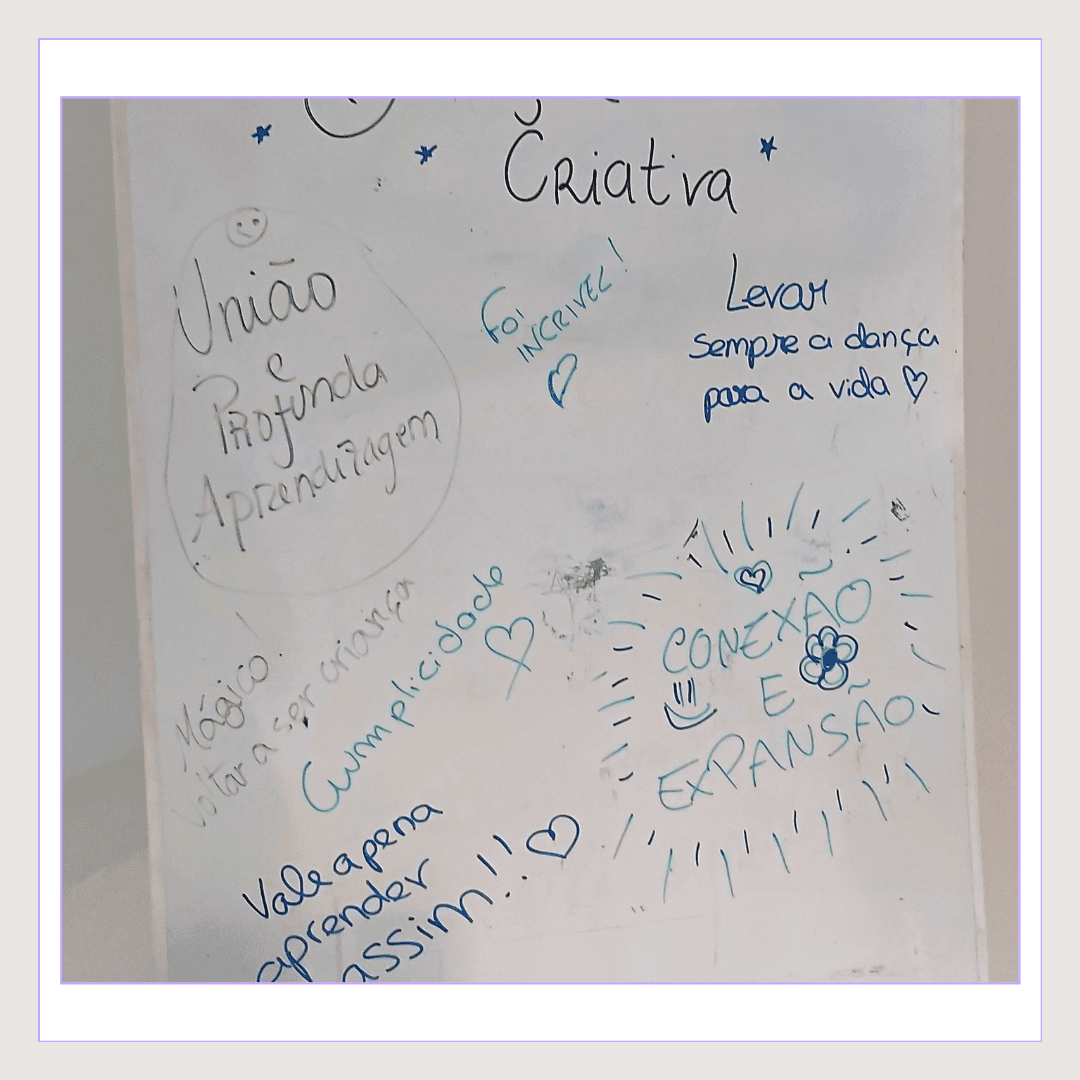 Criativa
União
e
Profunda
Aprendizagem
Foi
INCRIVEL!
Levar
sempre a dança
para a vida
Mágico.
Voltar a ser criança!
Cumplicidade
CONEXÃO
E
EXPANSÃO
Vale a pena
aprender
assim!!